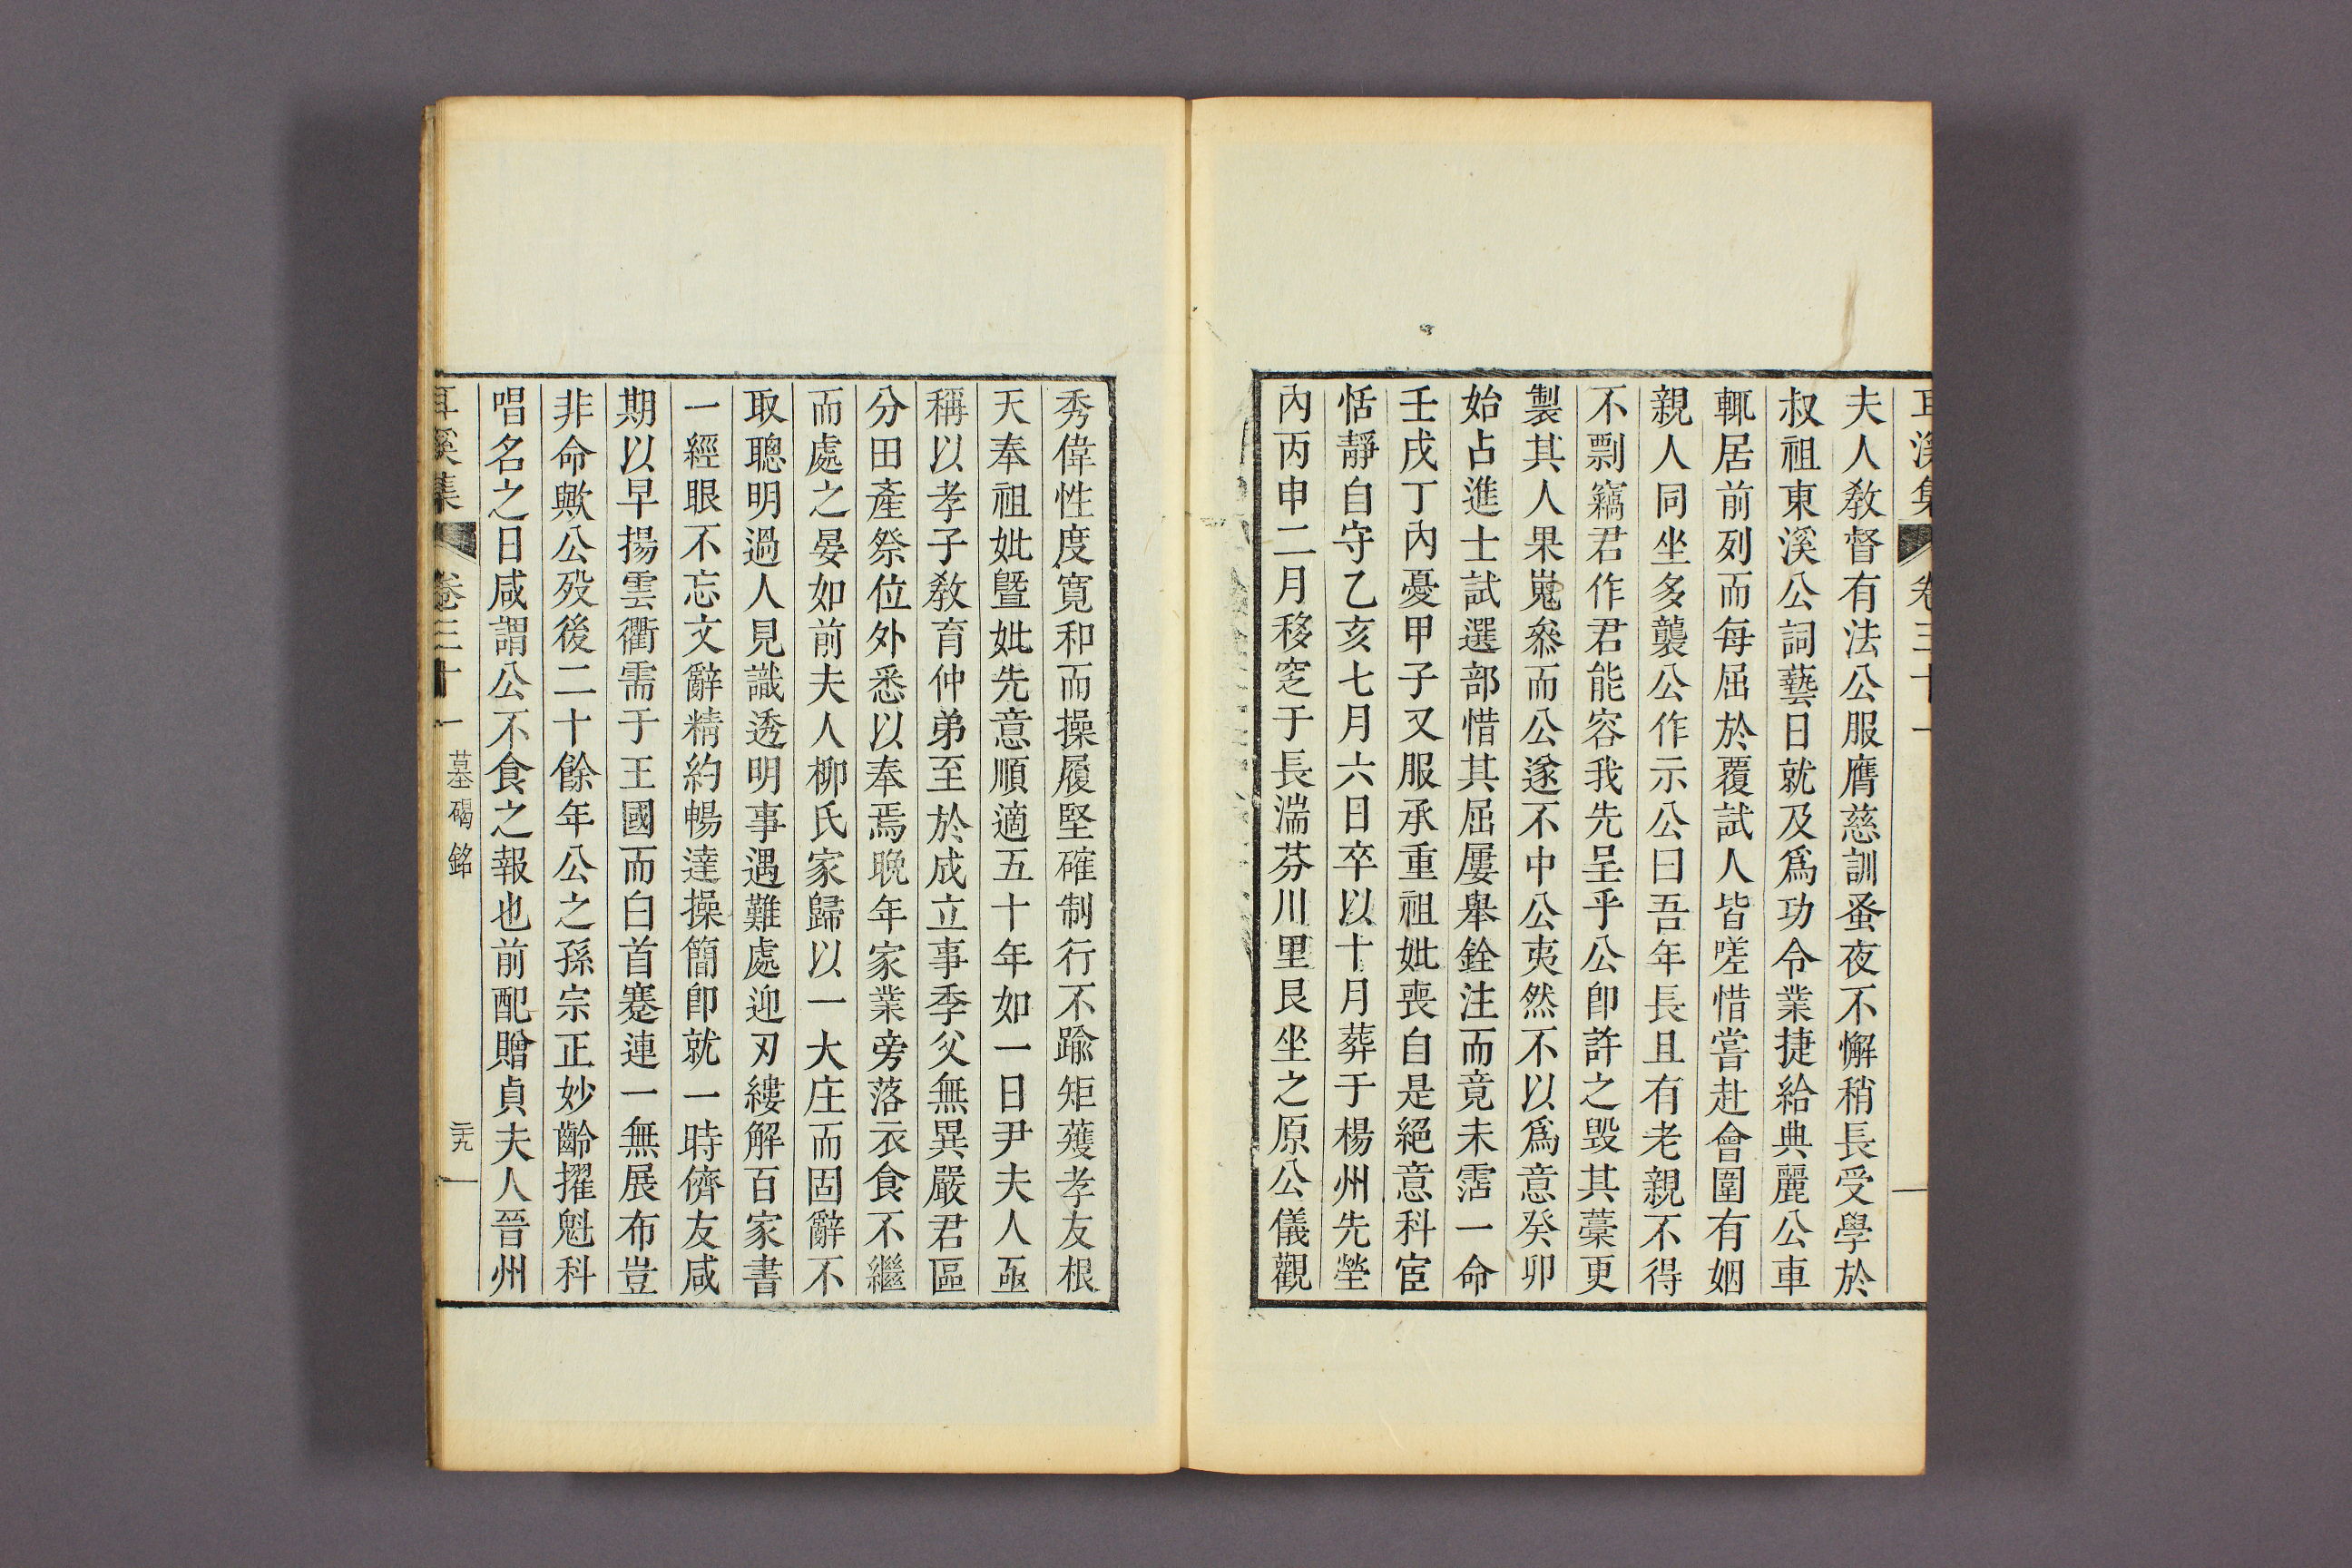 耳溪集 卷三十一
夫人敎督有法公服膺慈訓蚤夜不懈稍長受學於
叔祖東溪公詞藝日就及爲功令業捷給典麗公車
輒居前列而每屈於覆試人皆嗟惜嘗赴會圍有姻
親人同坐多襲公作示公曰吾年長且有老親不得
不剽竊君作君能容我先呈乎公卽許之毁其藁更
製其人果嵬叅而公遂不中公夷然不以爲意癸卯
始占進士試選部惜其屈屢舉銓注而竟未霑一命
壬戌丁內憂甲子又服承重祖妣喪自是絕意科宦
恬靜自守乙亥七月六日卒以十月葬于楊州先塋
內丙申二月移窆于長湍芬川里艮坐之原公儀觀
秀偉性度寬和而操履堅確制行不踰矩蒦孝友根
天奉祖妣曁妣先意順適五十年如一日尹夫人亟
稱以孝子敎育仲弟至於成立事季父無異嚴君區
分田產祭位外悉以奉焉晩年家業旁落衣食不繼
而處之晏如前夫人柳氏家歸以一大庄而固辭不
取聰明過人見識透明事遇難處迎刃縷解百家書
一經眼不忘文辭精約暢達操簡卽就一時儕友咸
期以早揚雲衢需于王國而白首蹇連一無展布豈
非命歟公歿後二十餘年公之孫宗正妙齡擢魁科
唱名之日咸謂公不食之報也前配贈貞夫人晉州
耳溪集 卷三十一 墓碣銘 二十九